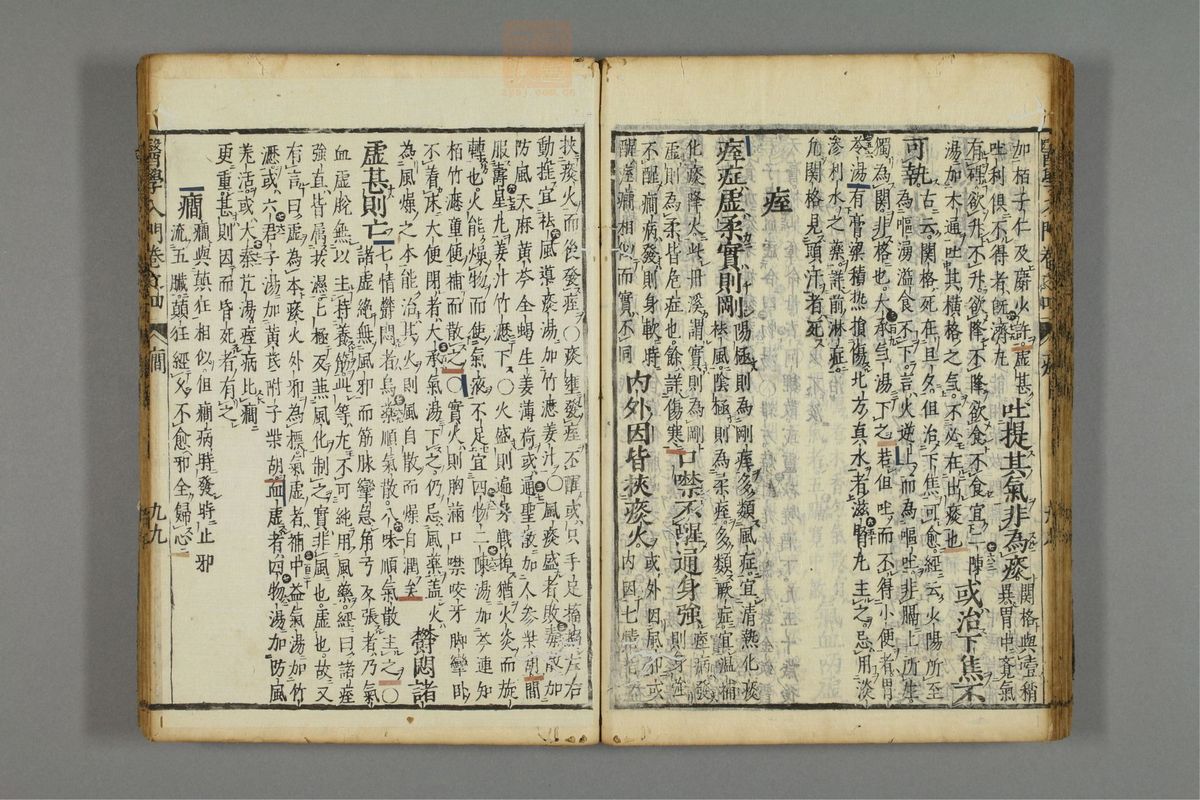 加栢子仁及麝少許虛甚
吐利俱不得者旣濟丸
吐提其氣非為痰
關格與壹稍
異胃中吝氣
有神欲升不升欲降不降飲食不食宜二陳
湯加木通吐其橫格之氣不必在出痰也
或治下焦不
可執
古云關格死在旦夕但治下焦可愈經云火陽所至
為嘔湧溢食不下言火逆上而為嘔吐非膈上所生
獨為關非格也大承气湯下之若但吐而不得小便者胃
苓湯有膏粱積熱搶傷北方真水者滋腎丸主之忌用淡
滲利水之藥詳前淋症
允關格見頭汗者死
痙
痙症虛柔實則剛
陽極則為剛痙多類風症宜清熱化痰
袪風陰極則為柔痙多類厥症宜溫補
化痰降火此丹溪謂實則為剛
虛則為柔皆危症也餘詳傷寒
口噤不醒通身強
痙病發
則身強
不醒癎病發則身軟時
醒痙癎相似而實不同
內外因皆挾痰火
內因七情
或外因風邪或
挾痰火而後發痙〇痰壅發痙不醒或只手足搐左右
動推宜袪風導痰湯加竹瀝姜汁〇風痰盛者敗毒散加
防風天麻黃芩全蝎生姜薄荷或通聖散加人參柴胡間
服壽星丸姜汁竹瀝下〇火盛則遍身戰掉猶火炎而旋
轉也火能燥物而使氣液不足宜四物二陳湯加芩連知
栢竹瀝童便補而散之〇實火則胸滿口噤咬牙脚攣臥
不着床大便閉者大承氣湯下之仍忌風藥蓋火
為風燥之本能治其火則風自散而燥自潤矣
欝悶諸
虛甚則亡
七情欝悶者烏藥順氣散八味順氣散主之〇
諸虛絕無風邪而筋脉攣急角弓反張者乃氣
血虛脫無以主持養筋此等尤不可純用風藥經曰諸痙
強直皆屬於濕上極反兼風化制之實非風也虛也故又
有言曰虛為本痰火外邪為標氣虛者補中益氣湯加竹
瀝或六君子湯加黃芪附子柴胡血虛者四物湯加防風
羌活或大秦艽湯痙病比癎
更重甚則因而昏死者有之
癎
癎與癲狂相似但癎病時發時止邪
流五臟癲狂經久不愈邪全歸心
醫學入門卷之四
癎
九九